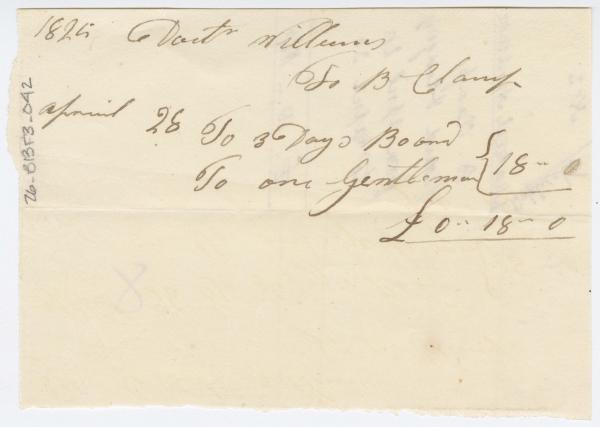 1825 Doctr Willems
To B Clamp
April 28 To 3 Days Board
To one Gentleman } 18 - 0
£ 0 - 18 - 0
76-B1BF3-042
8